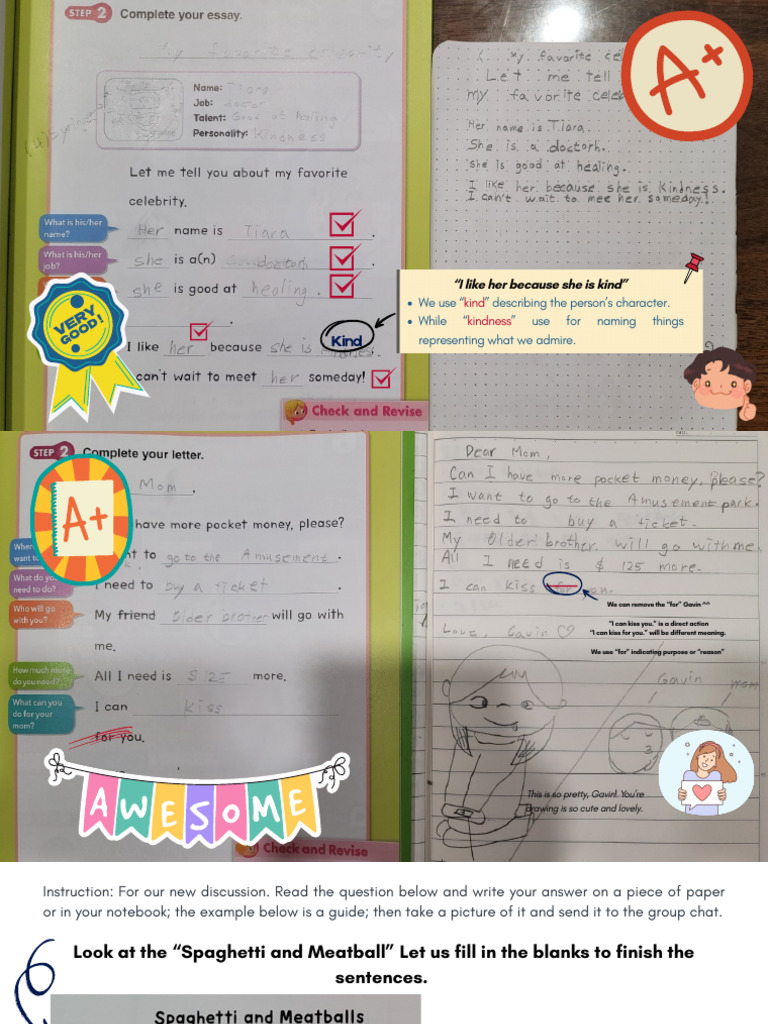 STEP 2 Complete your essay.
My favorite celebrity
Name: Tiara
Job: doctor
Talent: Good at healing
Personality: Kindness
Let me tell you about my favorite
celebrity.
What is his/her
name?
Her name is Tiara .
What is his/her
job?
she is a(n) doctorh .
she is good at healing .
.
I like her because she is Kind
can't wait to meet her someday!
Check and Revise
VERY
GOOD!
My favorite cele
Let me tell
my favorite celeb
Her name is Tiara.
She is a doctorh.
she is good at healing.
I like her because she is Kindness.
I can't wait to mee her someday!
A+
“I like her because she is kind”
• We use “kind” describing the person’s character.
• While “kindness” use for naming things
representing what we admire.
STEP 2 Complete your letter.
A+
Mom .
have more pocket money, please?
want to
nt to go to the Amusement .
What do you
need to do?
need to buy a ticket .
Who will go
with you?
My friend Older brother will go with
me.
How much more
do you need?
All I need is $125 more.
What can you
do for your
mom?
I can kiss
for you.
AWESOME
Check and Revise
Dear Mom,
Can I have more pocket money, please?
I want to go to the Amusement park.
I need to buy a ticket.
My Older brother will go with me.
All I need is $ 125 more.
I can kiss for you.
We can remove the "for" Gavin ^^
"I can kiss you." is a direct action
"I can kiss for you." will be different meaning.
We use "for" indicating purpose or "reason"
Love, Gavin ♡
Gavin
mom
This is so pretty, Gavin! You're
drawing is so cute and lovely.
Instruction: For our new discussion. Read the question below and write your answer on a piece of paper
or in your notebook; the example below is a guide; then take a picture of it and send it to the group chat.
Look at the “Spaghetti and Meatball” Let us fill in the blanks to finish the
sentences.
Spaghetti and Meatballs